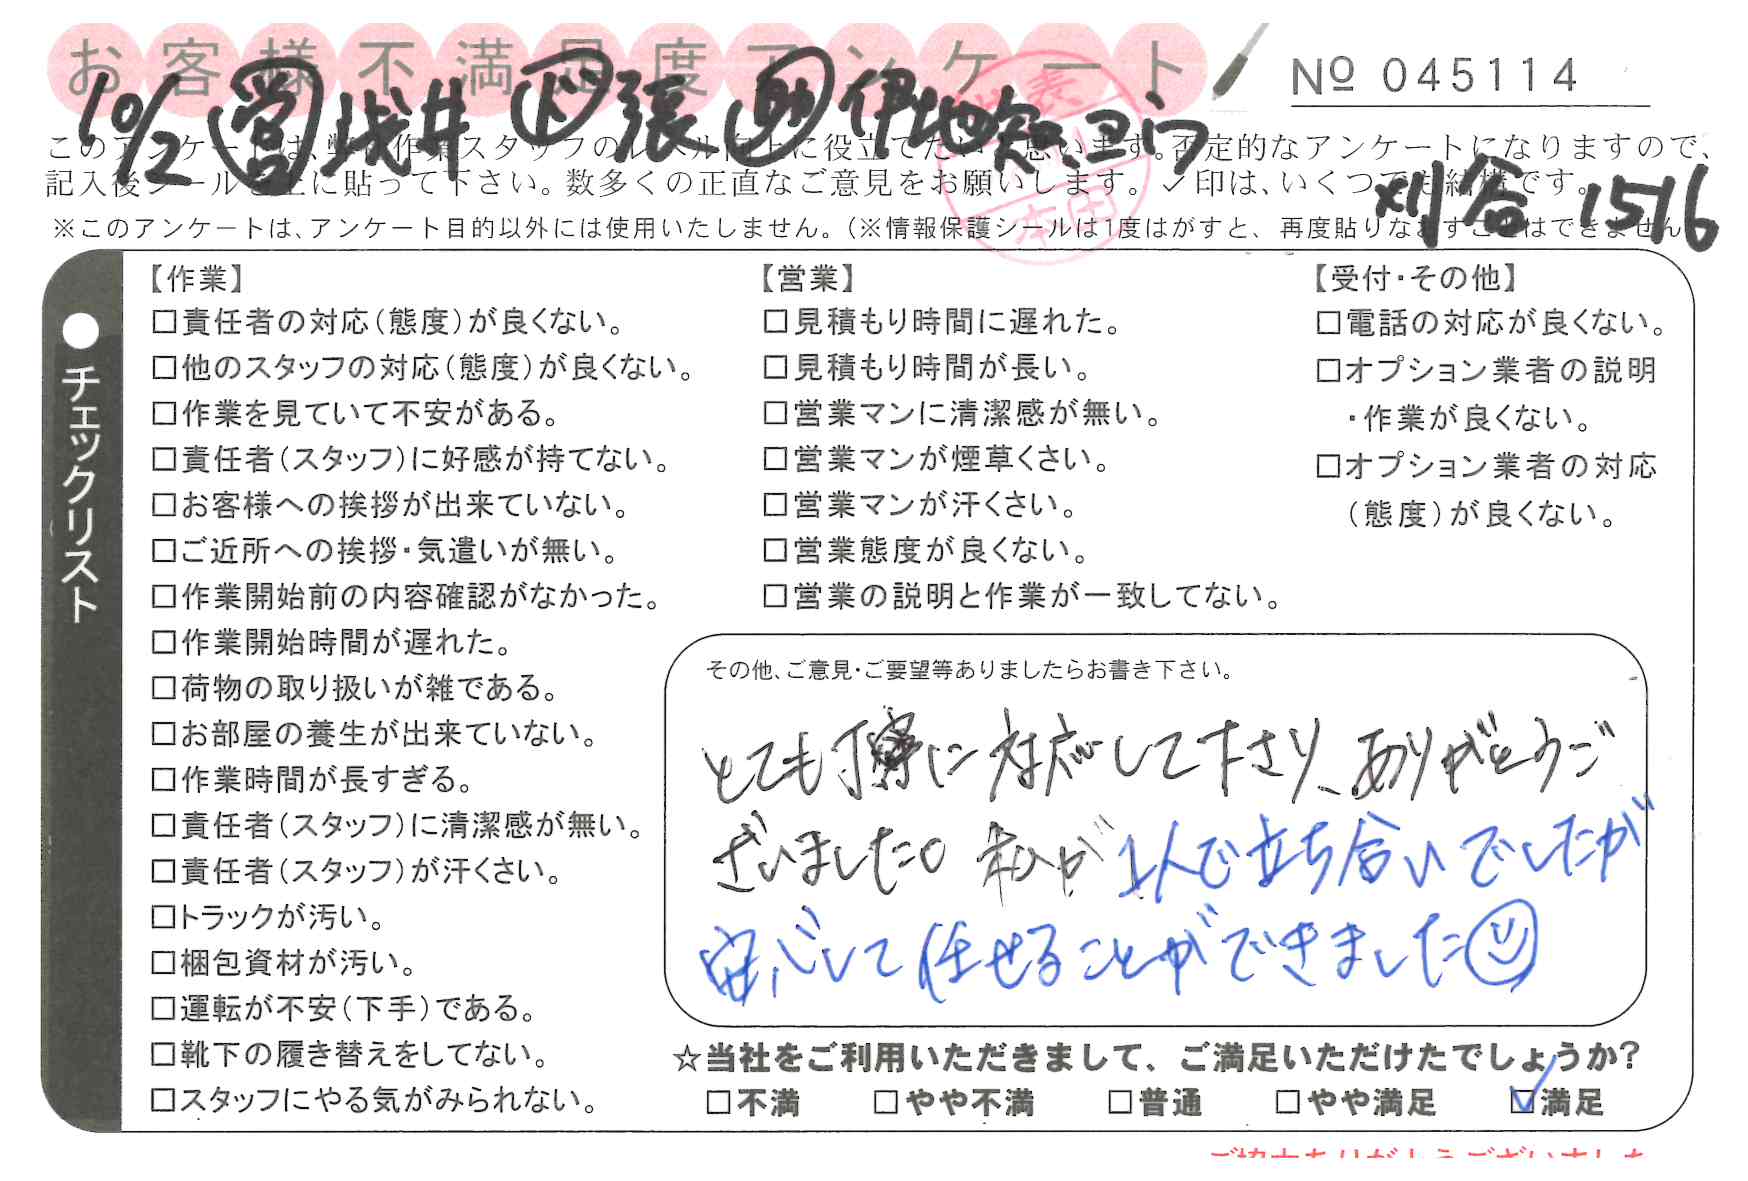 お客様不満足度アンケート
№ 045114
10/2 営 浅井 下 張 助 伊地知、コウ
刈谷 1516
このアンケートは、弊社作業スタッフのレベル向上に役立てたいと思います。否定的なアンケートになりますので、
記入後シールを上に貼って下さい。数多くの正直なご意見をお願いします。✓印は、いくつでも結構です。
※このアンケートは、アンケート目的以外には使用いたしません。(※情報保護シールは1度はがすと、再度貼りなおすことはできません
●チェックリスト
【作業】
□責任者の対応(態度)が良くない。
□他のスタッフの対応(態度)が良くない。
□作業を見ていて不安がある。
□責任者(スタッフ)に好感が持てない。
□お客様への挨拶が出来ていない。
□ご近所への挨拶・気遣いが無い。
□作業開始前の内容確認がなかった。
□作業開始時間が遅れた。
□荷物の取り扱いが雑である。
□お部屋の養生が出来ていない。
□作業時間が長すぎる。
□責任者(スタッフ)に清潔感が無い。
□責任者(スタッフ)が汗くさい。
□トラックが汚い。
□梱包資材が汚い。
□運転が不安(下手)である。
□靴下の履き替えをしてない。
□スタッフにやる気がみられない。
【営業】
□見積もり時間に遅れた。
□見積もり時間が長い。
□営業マンに清潔感が無い。
□営業マンが煙草くさい。
□営業マンが汗くさい。
□営業態度が良くない。
□営業の説明と作業が一致してない。
【受付・その他】
□電話の対応が良くない。
□オプション業者の説明
・作業が良くない。
□オプション業者の対応
(態度)が良くない。
その他、ご意見・ご要望等ありましたらお書き下さい。
とても丁寧に対応して下さり、ありがとうご
ざいました。私が1人で立ち合いでしたが
安心して任せることができました
☆当社をご利用いただきまして、ご満足いただけたでしょうか?
□不満 □やや不満 □普通 □やや満足 ☑満足
ご協力ありがとうございました